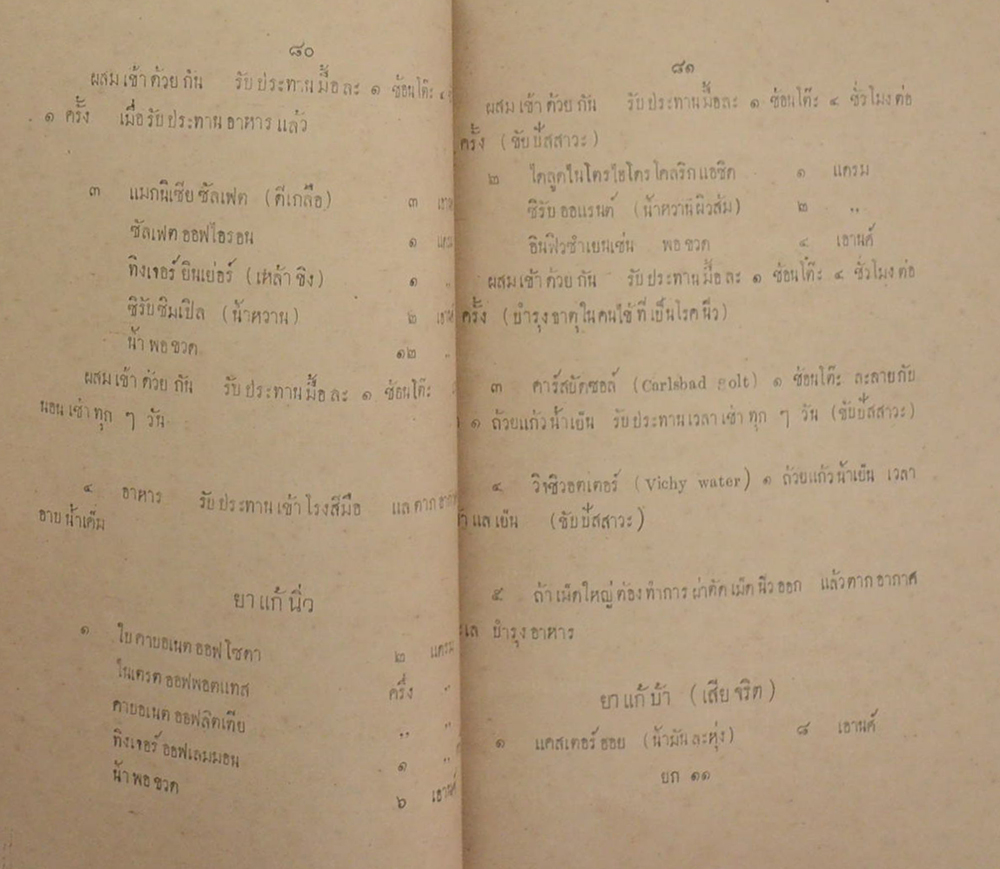 ๘๐
ผสมเข้าด้วยกัน รับประทานมื้อละ ๑ ช้อนโต๊ะ ๔
๑ ครั้ง เมื่อรับประทานอาหารแล้ว
๓ แมกนิเซียซัลเฟต (ดีเกลือ) ๓
ซัลเฟตออฟไอรอน ๑
ทิงเจอร์ยินเย่อร์ (เหล้าขิง) ๑ „
ซิรับซิมเปิล (น้ำหวาน) ๒
น้ำพอขวด ๑๒ „
ผสมเข้าด้วยกัน รับประทานมื้อละ ๑ ช้อนโต๊ะ
นอนเช้าทุก ๆ วัน
๔ อาหาร รับประทานเข้าโรงสีมือ แลตาก
อาบน้ำเค็ม
ยาแก้นิ่ว
๑ ไบคาบอเนตออฟโซดา ๒ แดรม
ไนเตรตออฟพอตแทส ครึ่ง „
คาบอเนตออฟลิตเทีย „ „
ทิงเจอร์ออฟเลมมอน ๑ „
น้ำพอขวด ๖ เอานค์
๘๑
ผสมเข้าด้วยกัน รับประทานมื้อละ ๑ ช้อนโต๊ะ ๔ ชั่วโมงต่อ
ครั้ง (ขับปัสสาวะ)
๒ ไดลูตไนโตรไฮโดรโคลริกแอซิด ๑ แดรม
ซิรับออแรนต์ (น้ำหวานผิวส้ม) ๒ „
อินฟิวซำเยนเช่น พอขวด ๔ เอานค์
ผสมเข้าด้วยกัน รับประทานมื้อละ ๑ ช้อนโต๊ะ ๔ ชั่วโมงต่อ
ครั้ง (บำรุงธาตุในคนไข้ที่เป็นโรคนิ่ว)
๓ คาร์สบัดซอล์ (Carlsbad solt) ๑ ช้อนโต๊ะ ละลายกับ
๑ ถ้วยแก้วน้ำเย็น รับประทานเวลาเช้าทุก ๆ วัน (ขับปัสสาวะ)
๔ วิชซิวอตเตอร์ (Vichy water) ๑ ถ้วยแก้วน้ำเย็น เวลา
แลเย็น (ขับปัสสาวะ)
๕ ถ้าเม็ดใหญ่ต้องทำการผ่าตัดเม็ดนิ่วออก แล้วตากอากาศ
บำรุงอาหาร
ยาแก้บ้า (เสียจริต)
๑ แคสเตอร์ออย (น้ำมันละหุ่ง) ๘ เอานค์
ยก ๑๑